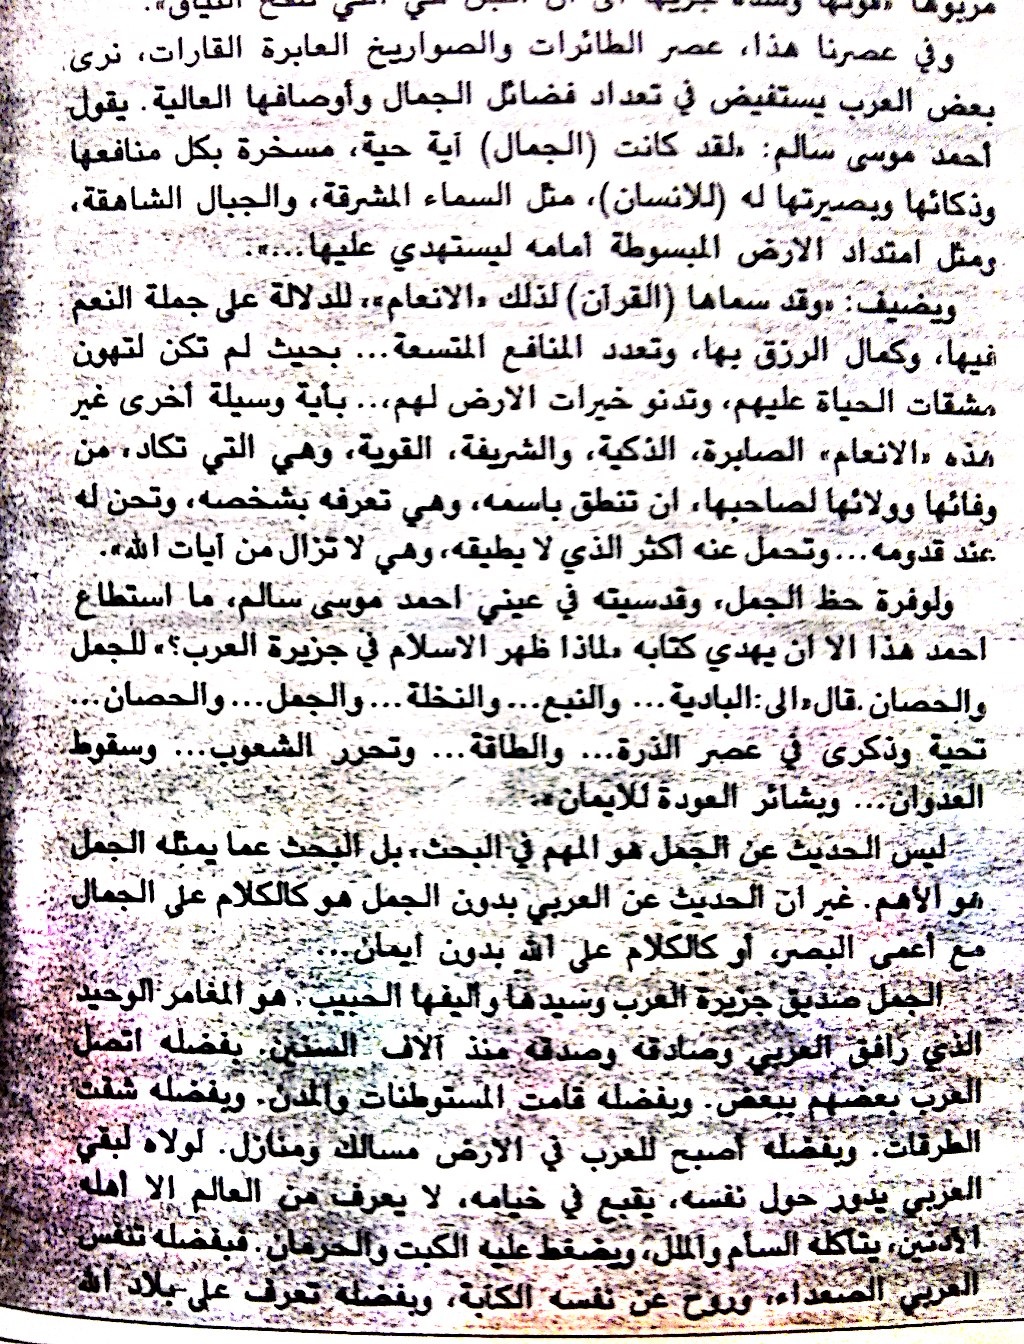 مربوها
وفي عصرنا هذا، عصر الطائرات والصواريخ العابرة القارات، نرى
بعض العرب يستفيض في تعداد فضائل الجمال وأوصافها العالية. يقول
أحمد موسى سالم: «لقد كانت (الجمال) آية حية، مسخرة بكل منافعها
وذكائها وبصيرتها له (للانسان)، مثل السماء المشرقة، والجبال الشاهقة،
ومثل امتداد الارض المبسوطة أمامه ليستهدي عليها...».
ويضيف: «وقد سماها (القرآن) لذلك «الانعام»، للدلالة على جملة النعم
فيها، وكمال الرزق بها، وتعدد المنافع المتسعة... بحيث لم تكن لتهون
مشقات الحياة عليهم، وتدنو خيرات الارض لهم،.. بأية وسيلة أخرى غير
هذه «الانعام» الصابرة، الذكية، والشريفة، القوية، وهي التي تكاد، من
وفائها وولائها لصاحبها، ان تنطق باسمه، وهي تعرفه بشخصه، وتحن له
عند قدومه... وتحمل عنه أكثر الذي لا يطيقه، وهي لا تزال من آيات الله».
ولوفرة حظ الجمل، وقدسيته في عيني احمد موسى سالم، ما استطاع
احمد هذا الا ان يهدي كتابه «لماذا ظهر الاسلام في جزيرة العرب؟» للجمل
والحصان. قال «الى: البادية... والنبع... والنخلة... والجمل... والحصان...
تحية وذكرى في عصر الذرة... والطاقة... وتحرر الشعوب... وسقوط
العدوان... وبشائر العودة للايمان».
ليس الحديث عن الجمل هو المهم في البحث، بل البحث عما يمثله الجمل
هو الأهم. غير ان الحديث عن العربي بدون الجمل هو كالكلام على الجمال
مع أعمى البصر، أو كالكلام على الله بدون ايمان...
الجمل صديق جزيرة العرب وسيدها وأليفها الحبيب. هو المغامر الوحيد
الذي رافق العربي وصادقه وصدقه منذ آلاف السنين. بفضله اتصل
العرب بعضهم ببعض. وبفضله قامت المستوطنات والمدن. وبفضله شقت
الطرقات. وبفضله أصبح للعرب في الارض مسالك ومنازل. لولاه لبقي
العربي يدور حول نفسه، يقبع في خيامه، لا يعرف من العالم الا أهله
الأدنين، يتأكله السأم والملل، ويضغط عليه الكبت والحرمان. فبفضله تنفس
العربي الصعداء، وروح عن نفسه الكآبة، وبفضله تعرف على بلاد الله